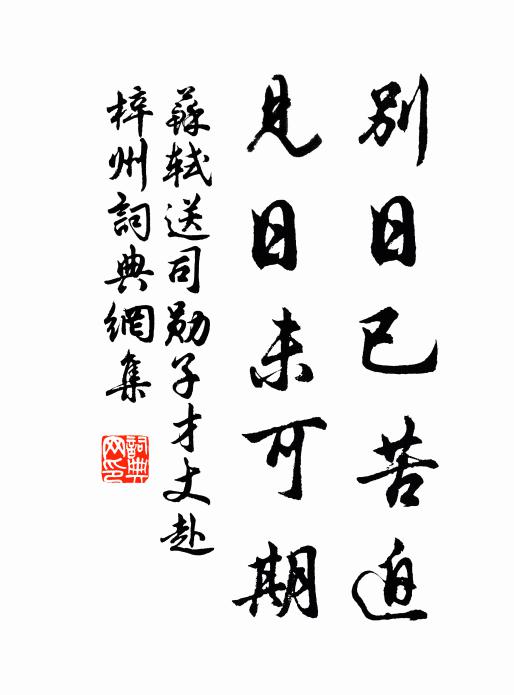 別日已苦迫
見日未可期
蘇軾送司勛子才丈赴
梓州詞典網集
詞典网印